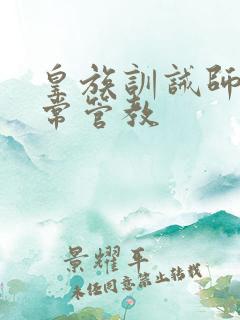 皇族訓誡師
常管教
景耀平
未经同意禁止转载